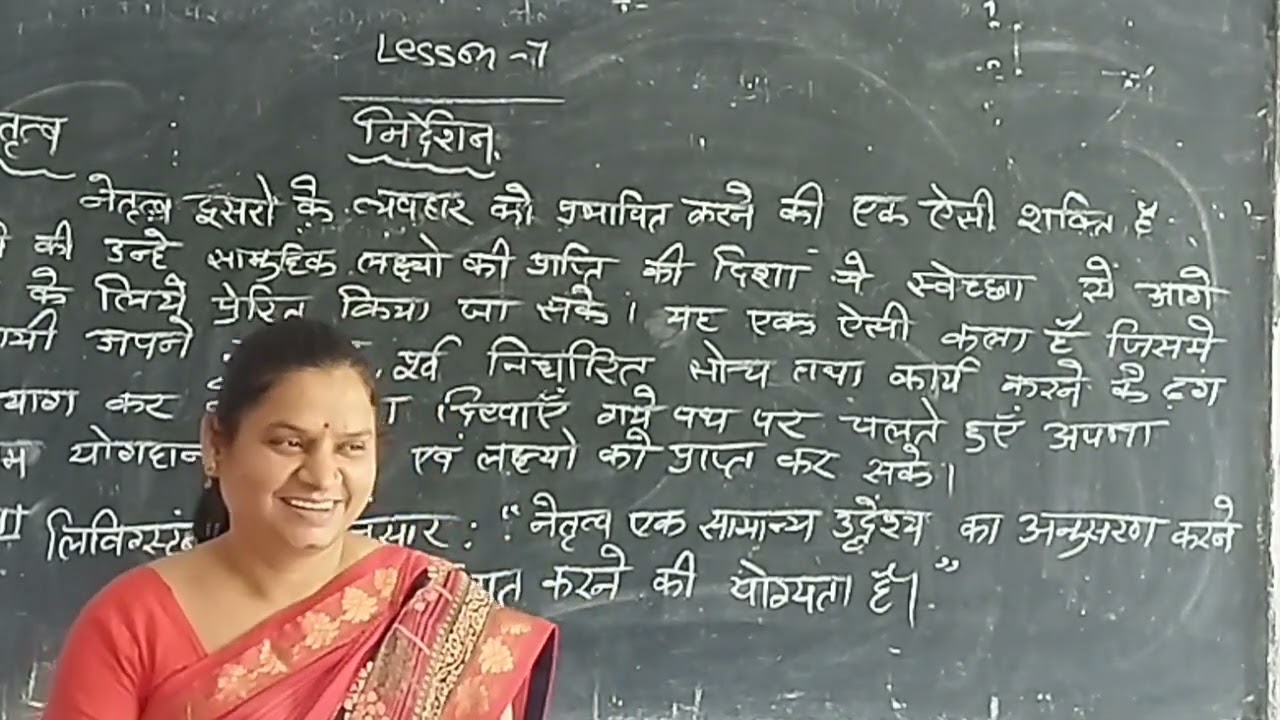 Lesson -7
निर्देशन
तृत्व :
नेतृत्व दुसरो के व्यवहार को प्रभावित करने की एक ऐसी शक्ति है
की उन्हे सामुहिक लक्ष्यो की प्राप्ति की दिशा मे स्वेच्छा से आगे
के लिये प्रेरित किया जा सके। यह एक ऐसी कला है जिसमे
यी अपने र्व निर्धारित सोच तथा कार्य करने के ढंग
याग कर दिखाएँ गये पथ पर चलते हुएँ अपना
म योगदान एवं लक्ष्यो को प्राप्त कर सके।
लिविंग्स्ट सार : “नेतृत्व एक सामान्य उद्देश्य का अनुसरण करने
त करने की योग्यता है।”